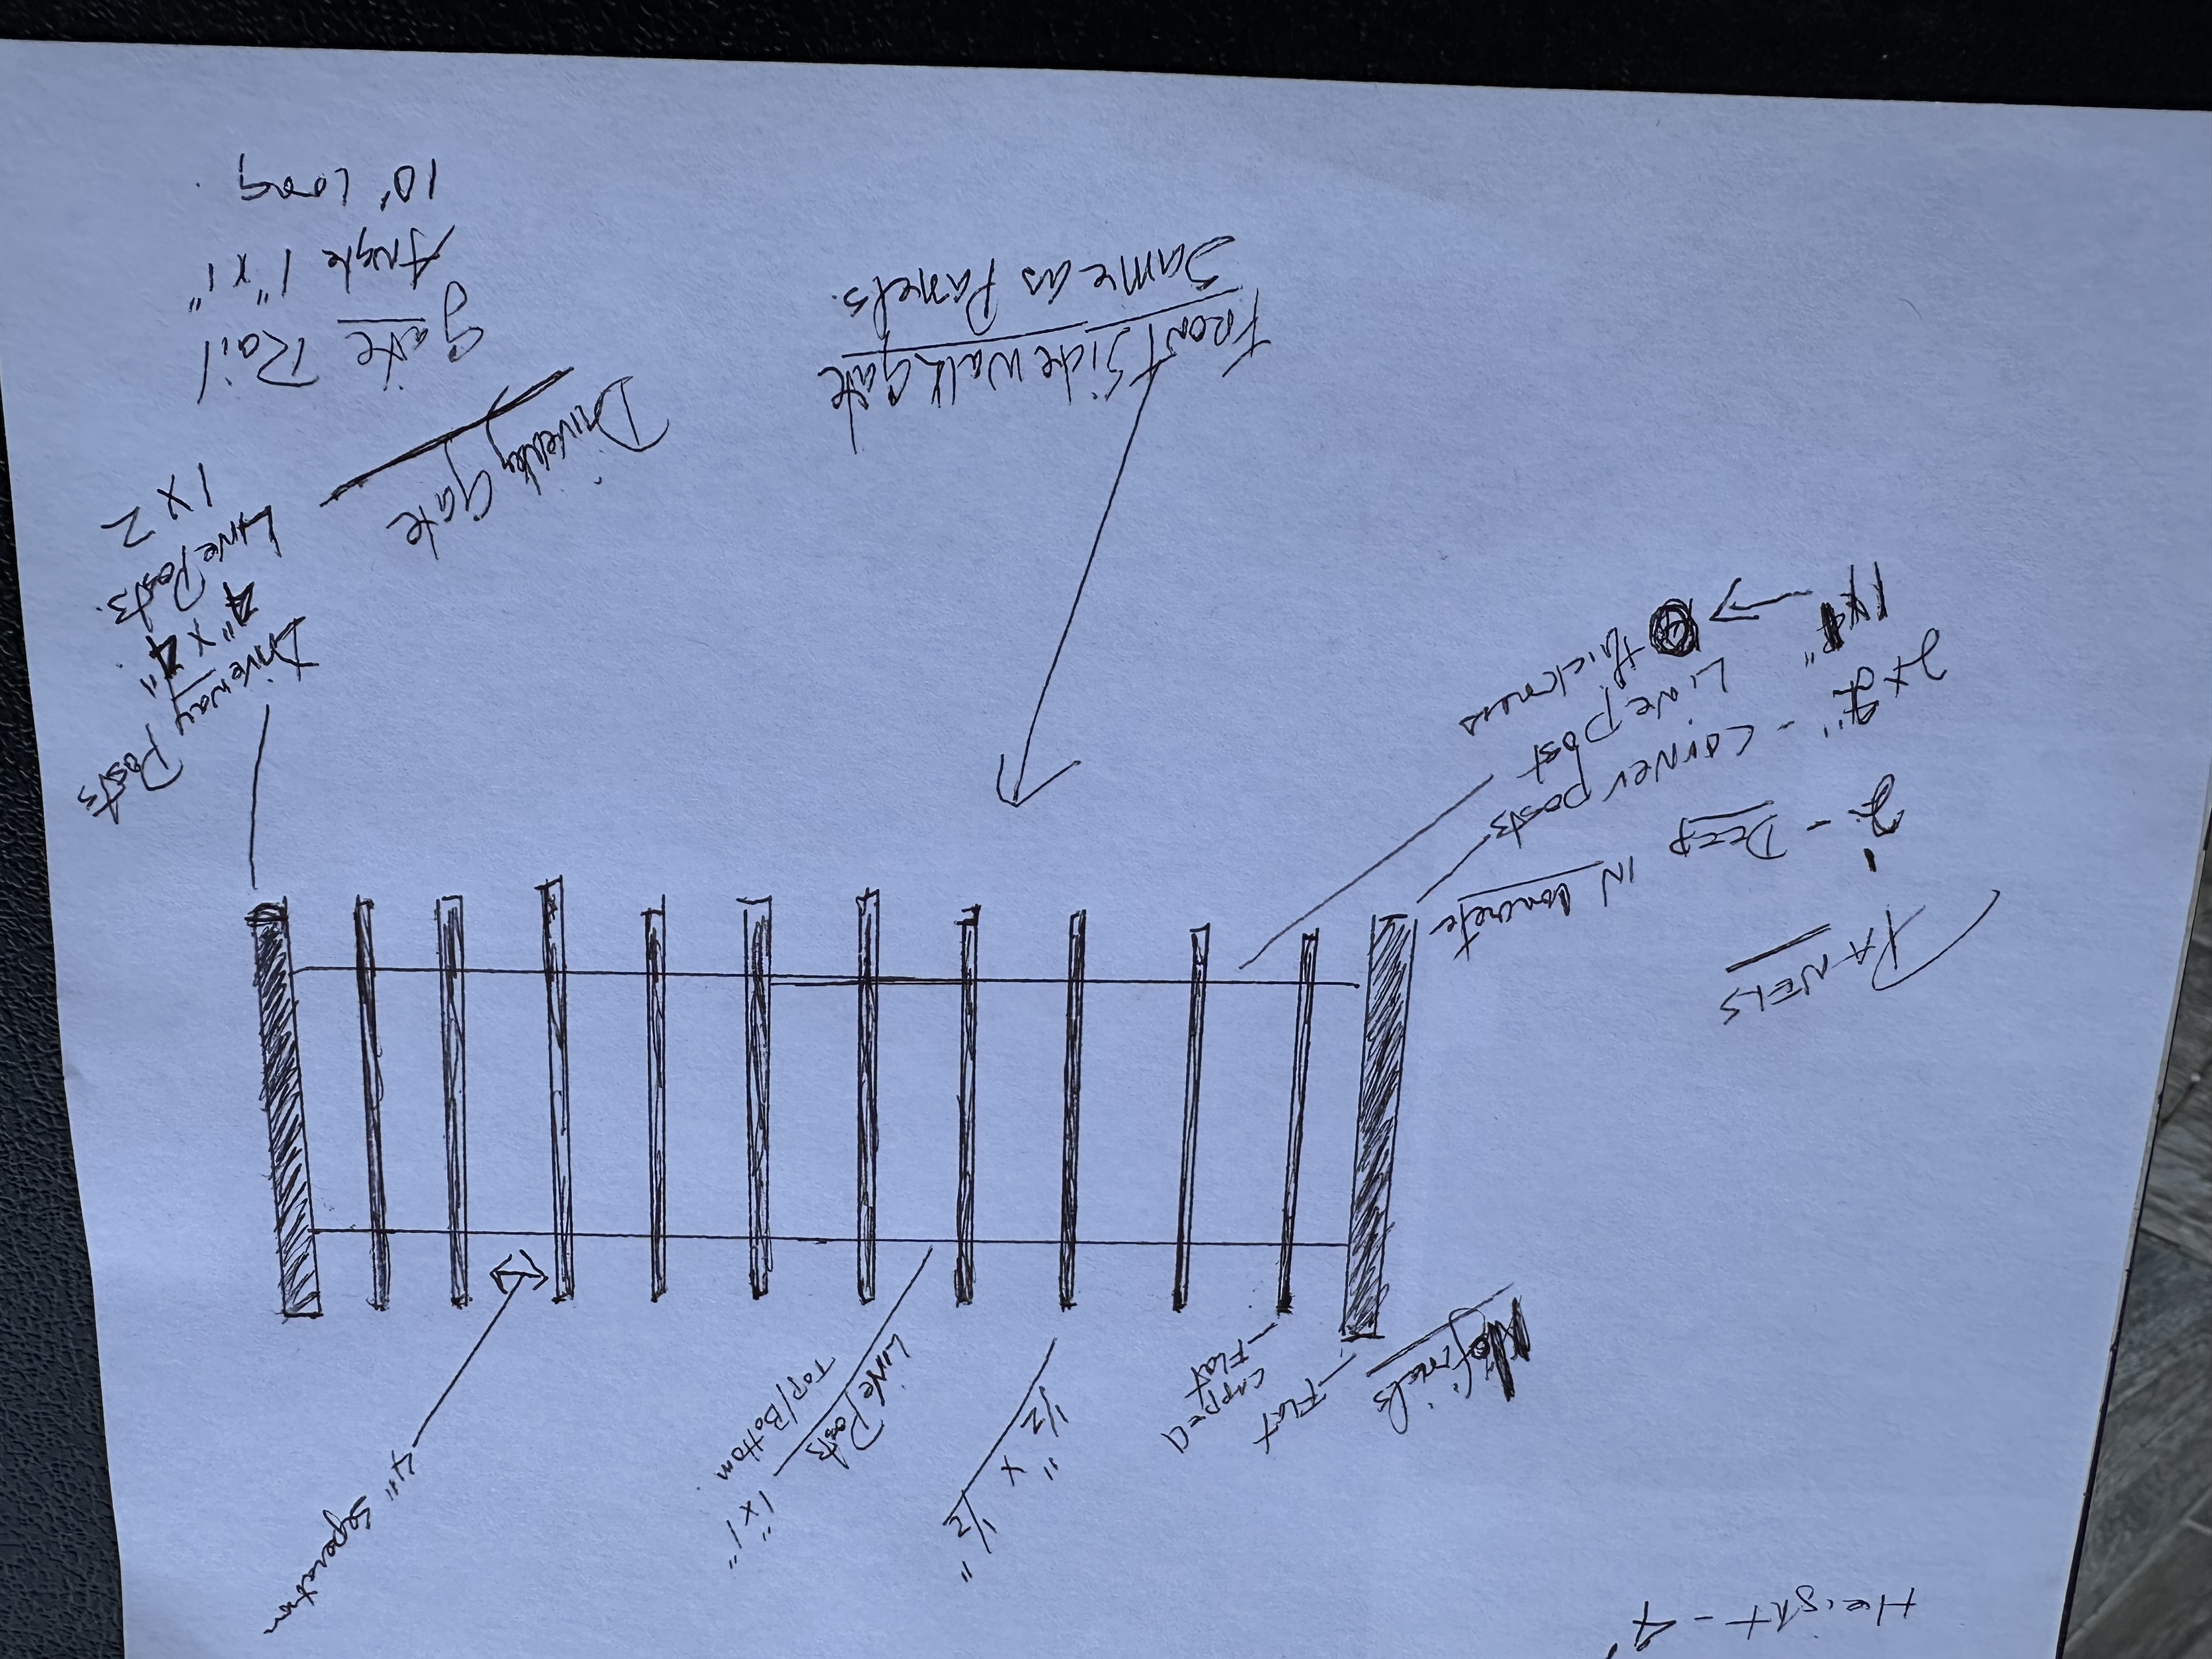 Height - 4'
No finials
- Flat
- Flat
capped
1/2" x 1/2"
Line Posts
Top/Bottom
1" x 1"
4" separation
PANELS
2' - DEEP IN Concrete
2x2" - corner posts
Line post
thickness
Driveway Posts
4" x 4"
Line Posts.
1 x 2
Front Side walk gate
Same as Panels.
Driveway gate
gate Rail
Angle 1" x 1"
10' Long.